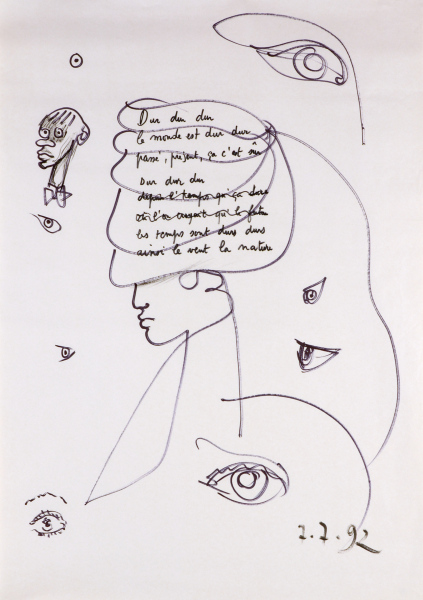 Dur dur dur
le monde est dur dur
passé, présent, ça c'est sûr
Dur dur dur
depuis l'temps qu'ça dure
qu'le
les temps sont durs durs
ainsi le veut la nature
7.7.92